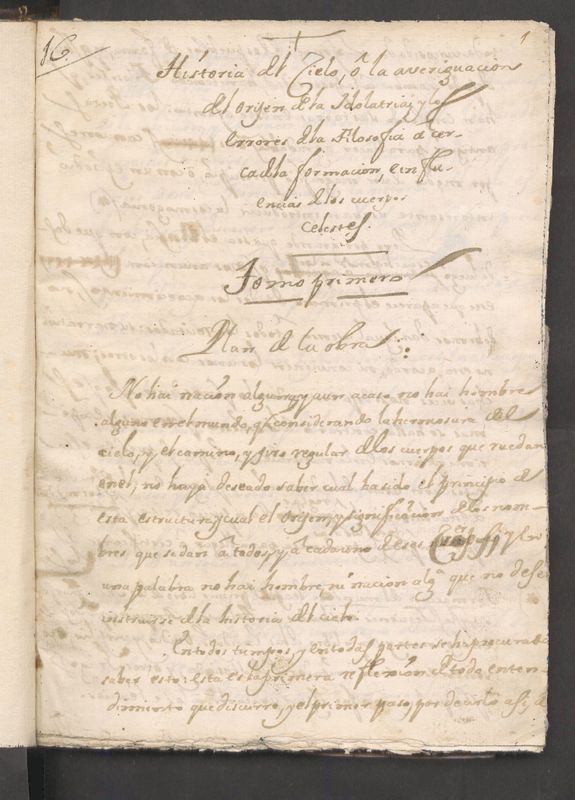 16.
1
Historia del Cielo, ô la averiguacion
del origen dela Idolatria, y los
errores dela Filosofia acer-
ca dela formacion, e influ-
encias delos cuerpos
celestes.
Tomo primero
Plan de la obra
No hai nacion alguna, y aun acaso no hai hombre
alguno en el mundo, que considerando la hermosura del
cielo, y el camino, y giro regular delos cuerpos que ruedan
en el, no haya deseado saber cual ha sido el principio de
esta estructura, y cual el origen, y significacion delos nom-
bres que se dan â todos, y â cada uno de esos
una palabra no hai hombre, ni nacion alga que no desee
instruirse dela historia del cielo.
En todos tiempos, y en todas partes se ha procurado
saber esto: esta es la primera reflexion de todo enten-
dimiento que discurre, y el primer paso, por decirlo asi,